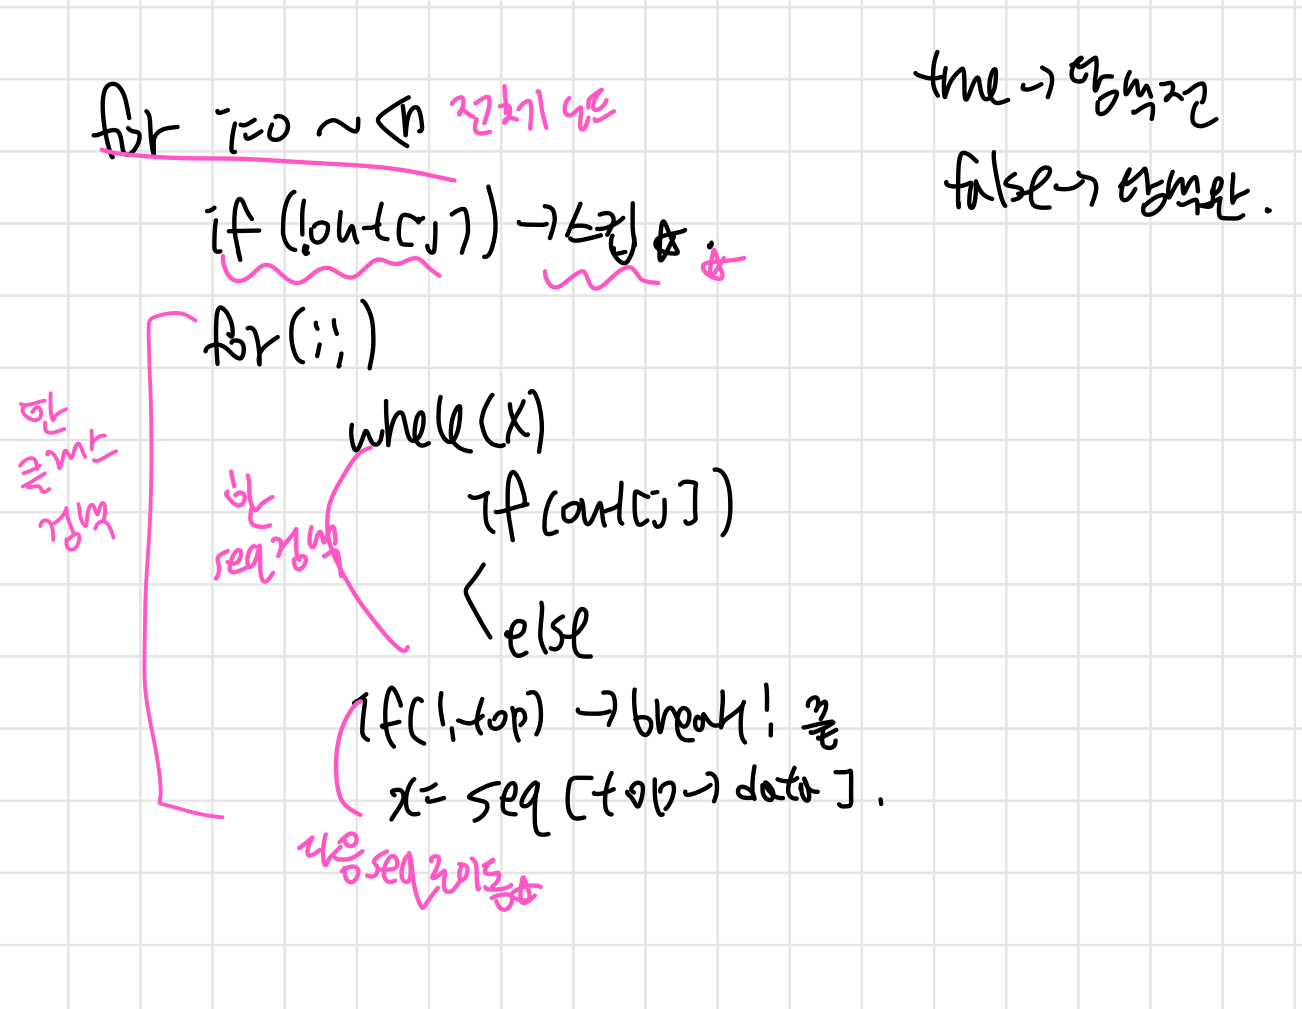 for i=0 ~ <n 전체 노드
true → 탐색전
false → 탐색완.
if (!out[j]) → 스킵☆.☆
for(;;)
while(x)
if(out[j])
else
한 클래스 검색
한 seq 검색
if(!top) → break! 끝
x= seq[top→data].
다음 seq로 이동☆